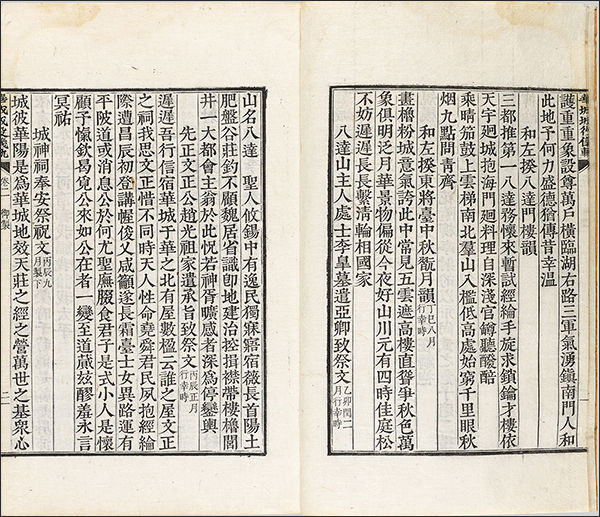 護重重象設尊萬戶橫臨湖右路三軍氣湧鎭南門人和
此地予何力盛德猶傳昔幸溫
和左揆八達門樓韻
三都推第一八達務懷來暫試經綸手旋求鎖鑰才樓依
天宇廻城抱海門廻料理自深淺官罇聽醱醅
乘晴笳鼓上雲梯南北羣山入檻低高處始窮千里眼秋
烟九點間靑齊
和左揆東將臺中秋翫月韻丁巳八月行幸時
畫櫓粉城意氣誇此中常見五雲遮高樓直聳爭秋色萬
象俱明泛月華景物偏從今夜好山川元有四時佳庭松
不妨遲遲長長繫淸輪相國家
八達山主人處士李臯墓遣亞卿致祭文乙卯閏二月行幸時
山名八達 聖人攸錫中有逸民獨寐寤宿薇長首陽土
肥盤谷莊釣不顧魏居省識卽地建治控揖襟帶樓櫓閭
井一大都會主翁於此怳若神胥曠感者深爲停鑾輿
先正文正公趙光祖家遣承旨致祭文丙辰正月行幸時
遲遲吾行信宿華城于華之北有屋數楹云誰之屋文正
之祠我思文正惜不同時天人性命堯舜君民夙抱經綸
際遭昌辰初登講幄俊乂咸籲遂長霜臺士女異路運有
平陂道或消息公於何尤聖廡腏食君子是式小人是懷
顧予愾欽曷寬公來如公在者一變至道蕆玆醪羞永言
冥祐
城神祠奉安祭祝文丙辰九月製下
城彼華陽是爲華城地效天莊之經之營萬世之基衆心
卷一 御製 二